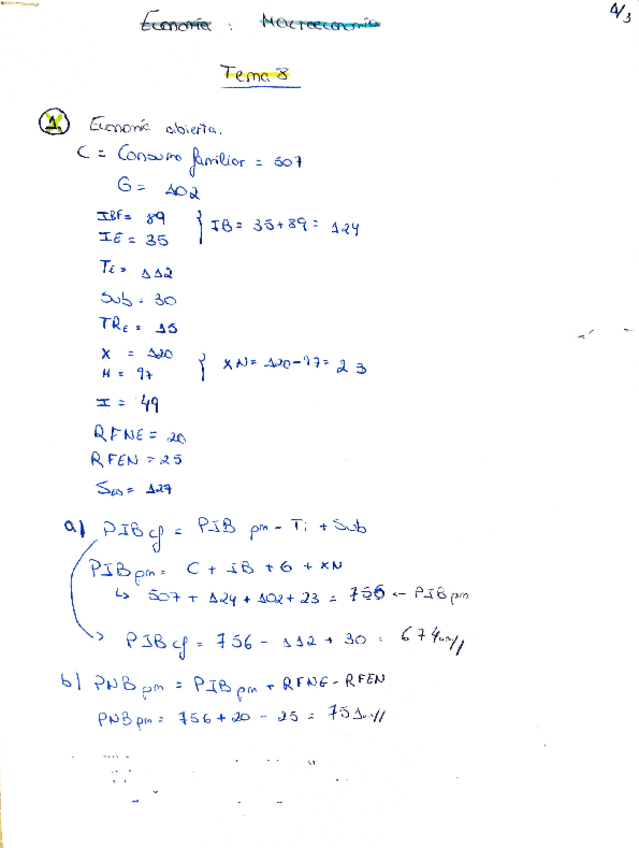 Economía : Macroeconomía
1/3
Tema 8
1. Economía abierta.
C = Consumo familiar = 507
G = 102
IBF = 89
IE = 35
IB = 35+89 = 124
Ti = 112
Sub = 30
TRE = 15
X = 120
M = 97
XN = 120-97 = 23
I = 49
RFNE = 20
RFEN = 25
= 127
a) PIBcf = PIB pm - Ti + Sub
PIBpm = C + IB + G + XN
↳ 507 + 124 + 102 + 23 = 756 ← PIBpm
PIBcf = 756 - 112 + 30 = 674 um//
b) PNBpm = PIBpm + RFNE - RFEN
PNBpm = 756 + 20 - 25 = 751 um//